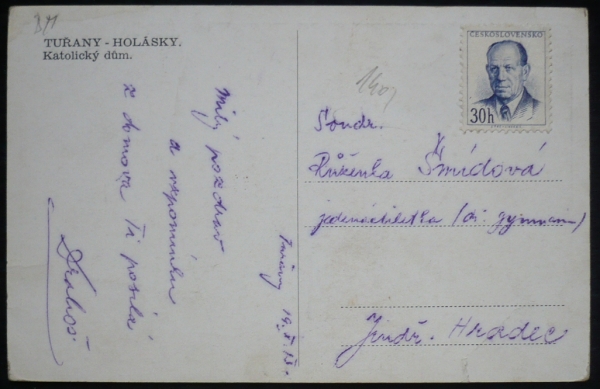 TUŘANY - HOLÁSKY.
Katolický dům.
Milý pozdrav
a vzpomínku
z domova Ti posílá
Drahoš
Tuřany 19.
ČESKOSLOVENSKO
30h
Soudr.
Růženka Šmídová
jedenáctiletka (gymnasium)
Jindř. Hradec